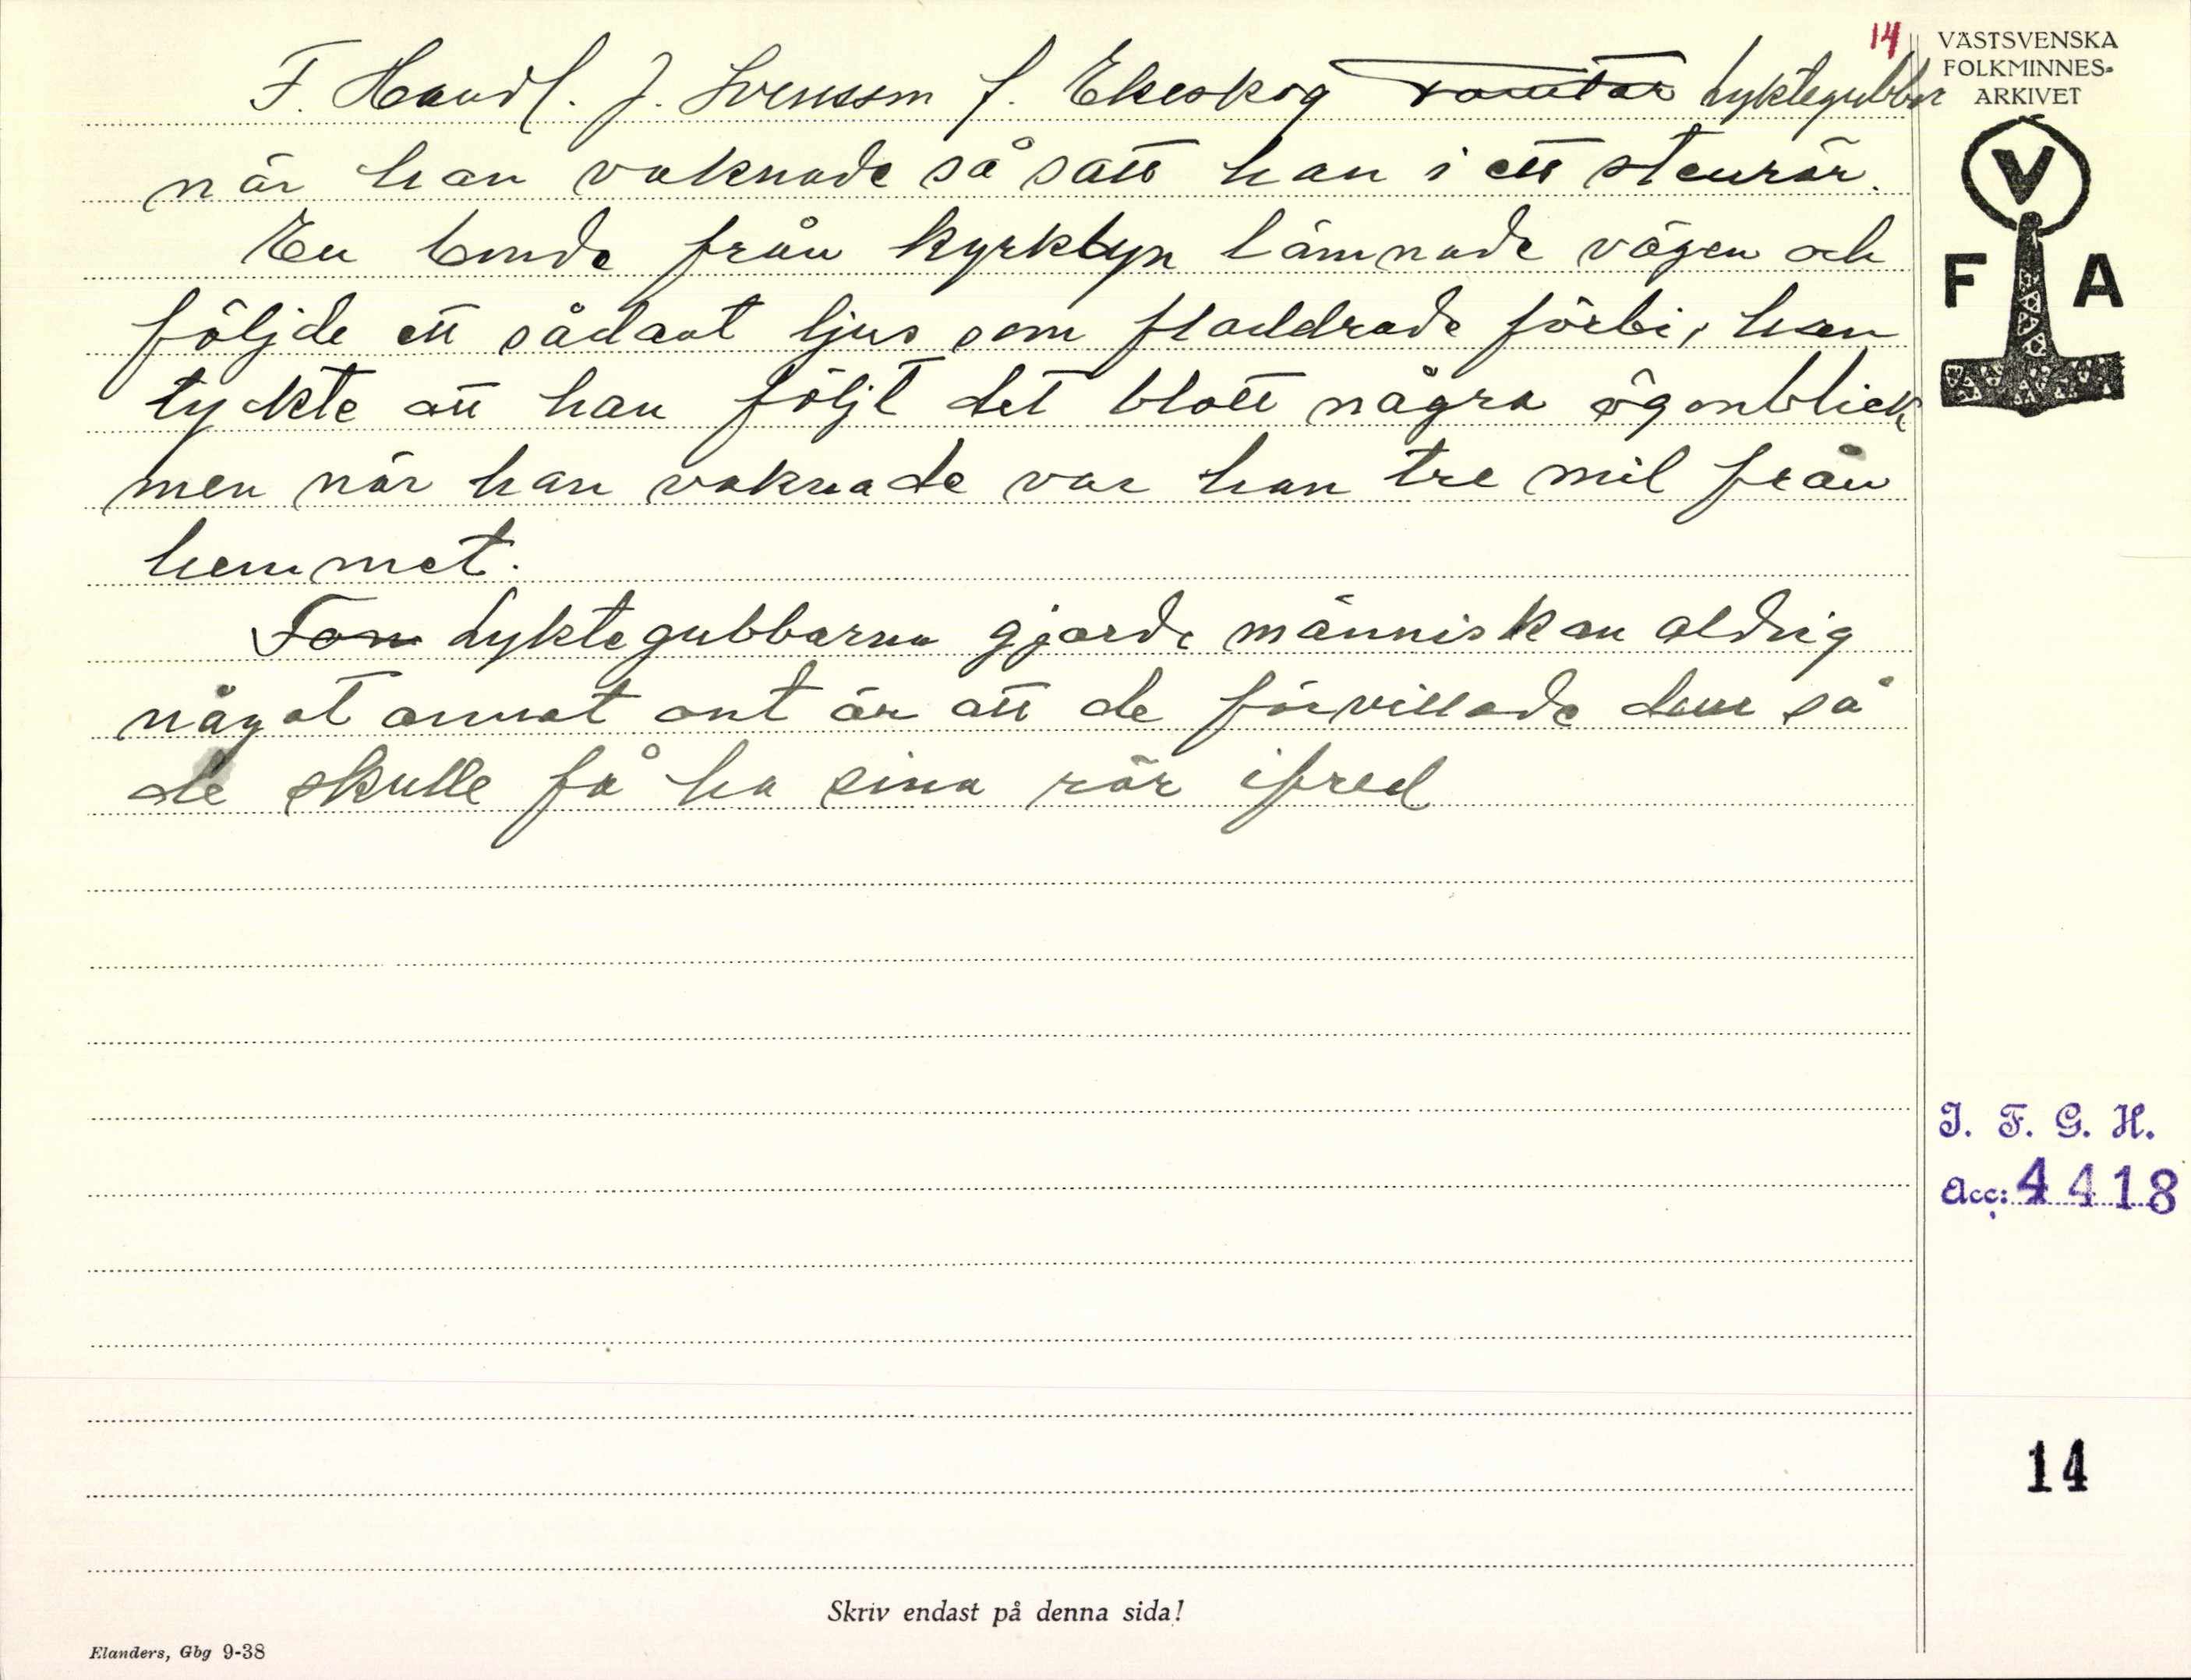 14
F. Handl. J. Svensson f. Ekeskog Tomtar Lyktegubbar
när han vaknade så satt han i ett stenrör.
En bonde från kyrkbyn lämnade vägen och
följde ett sådant ljus som fladdrade förbi, han
tyckte att han följt det blott några ögonblick
men när han vaknade var han tre mil från
hemmet.
Tom Lyktegubbarna gjorde människan aldrig
något annat ont är att de förvillade dem så
de skulle få ha sina rör ifred
VÄSTSVENSKA
FOLKMINNES-
ARKIVET
V
F A
I. F. G. H.
Acc: 4418
14
Skriv endast på denna sida!
Elanders, Gbg 9-38